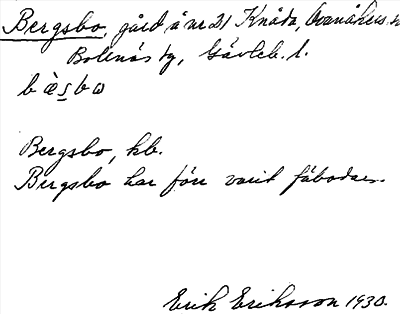 Bergsbo, gård å nr 21 Knåda, Ovanåkers sn
Bollnäs tg, Gävleb. l.
bæ̀s̲bω
Bergsbo, kb.
Bergsbo har förr varit fäbodar.
Erik Eriksson 1930.